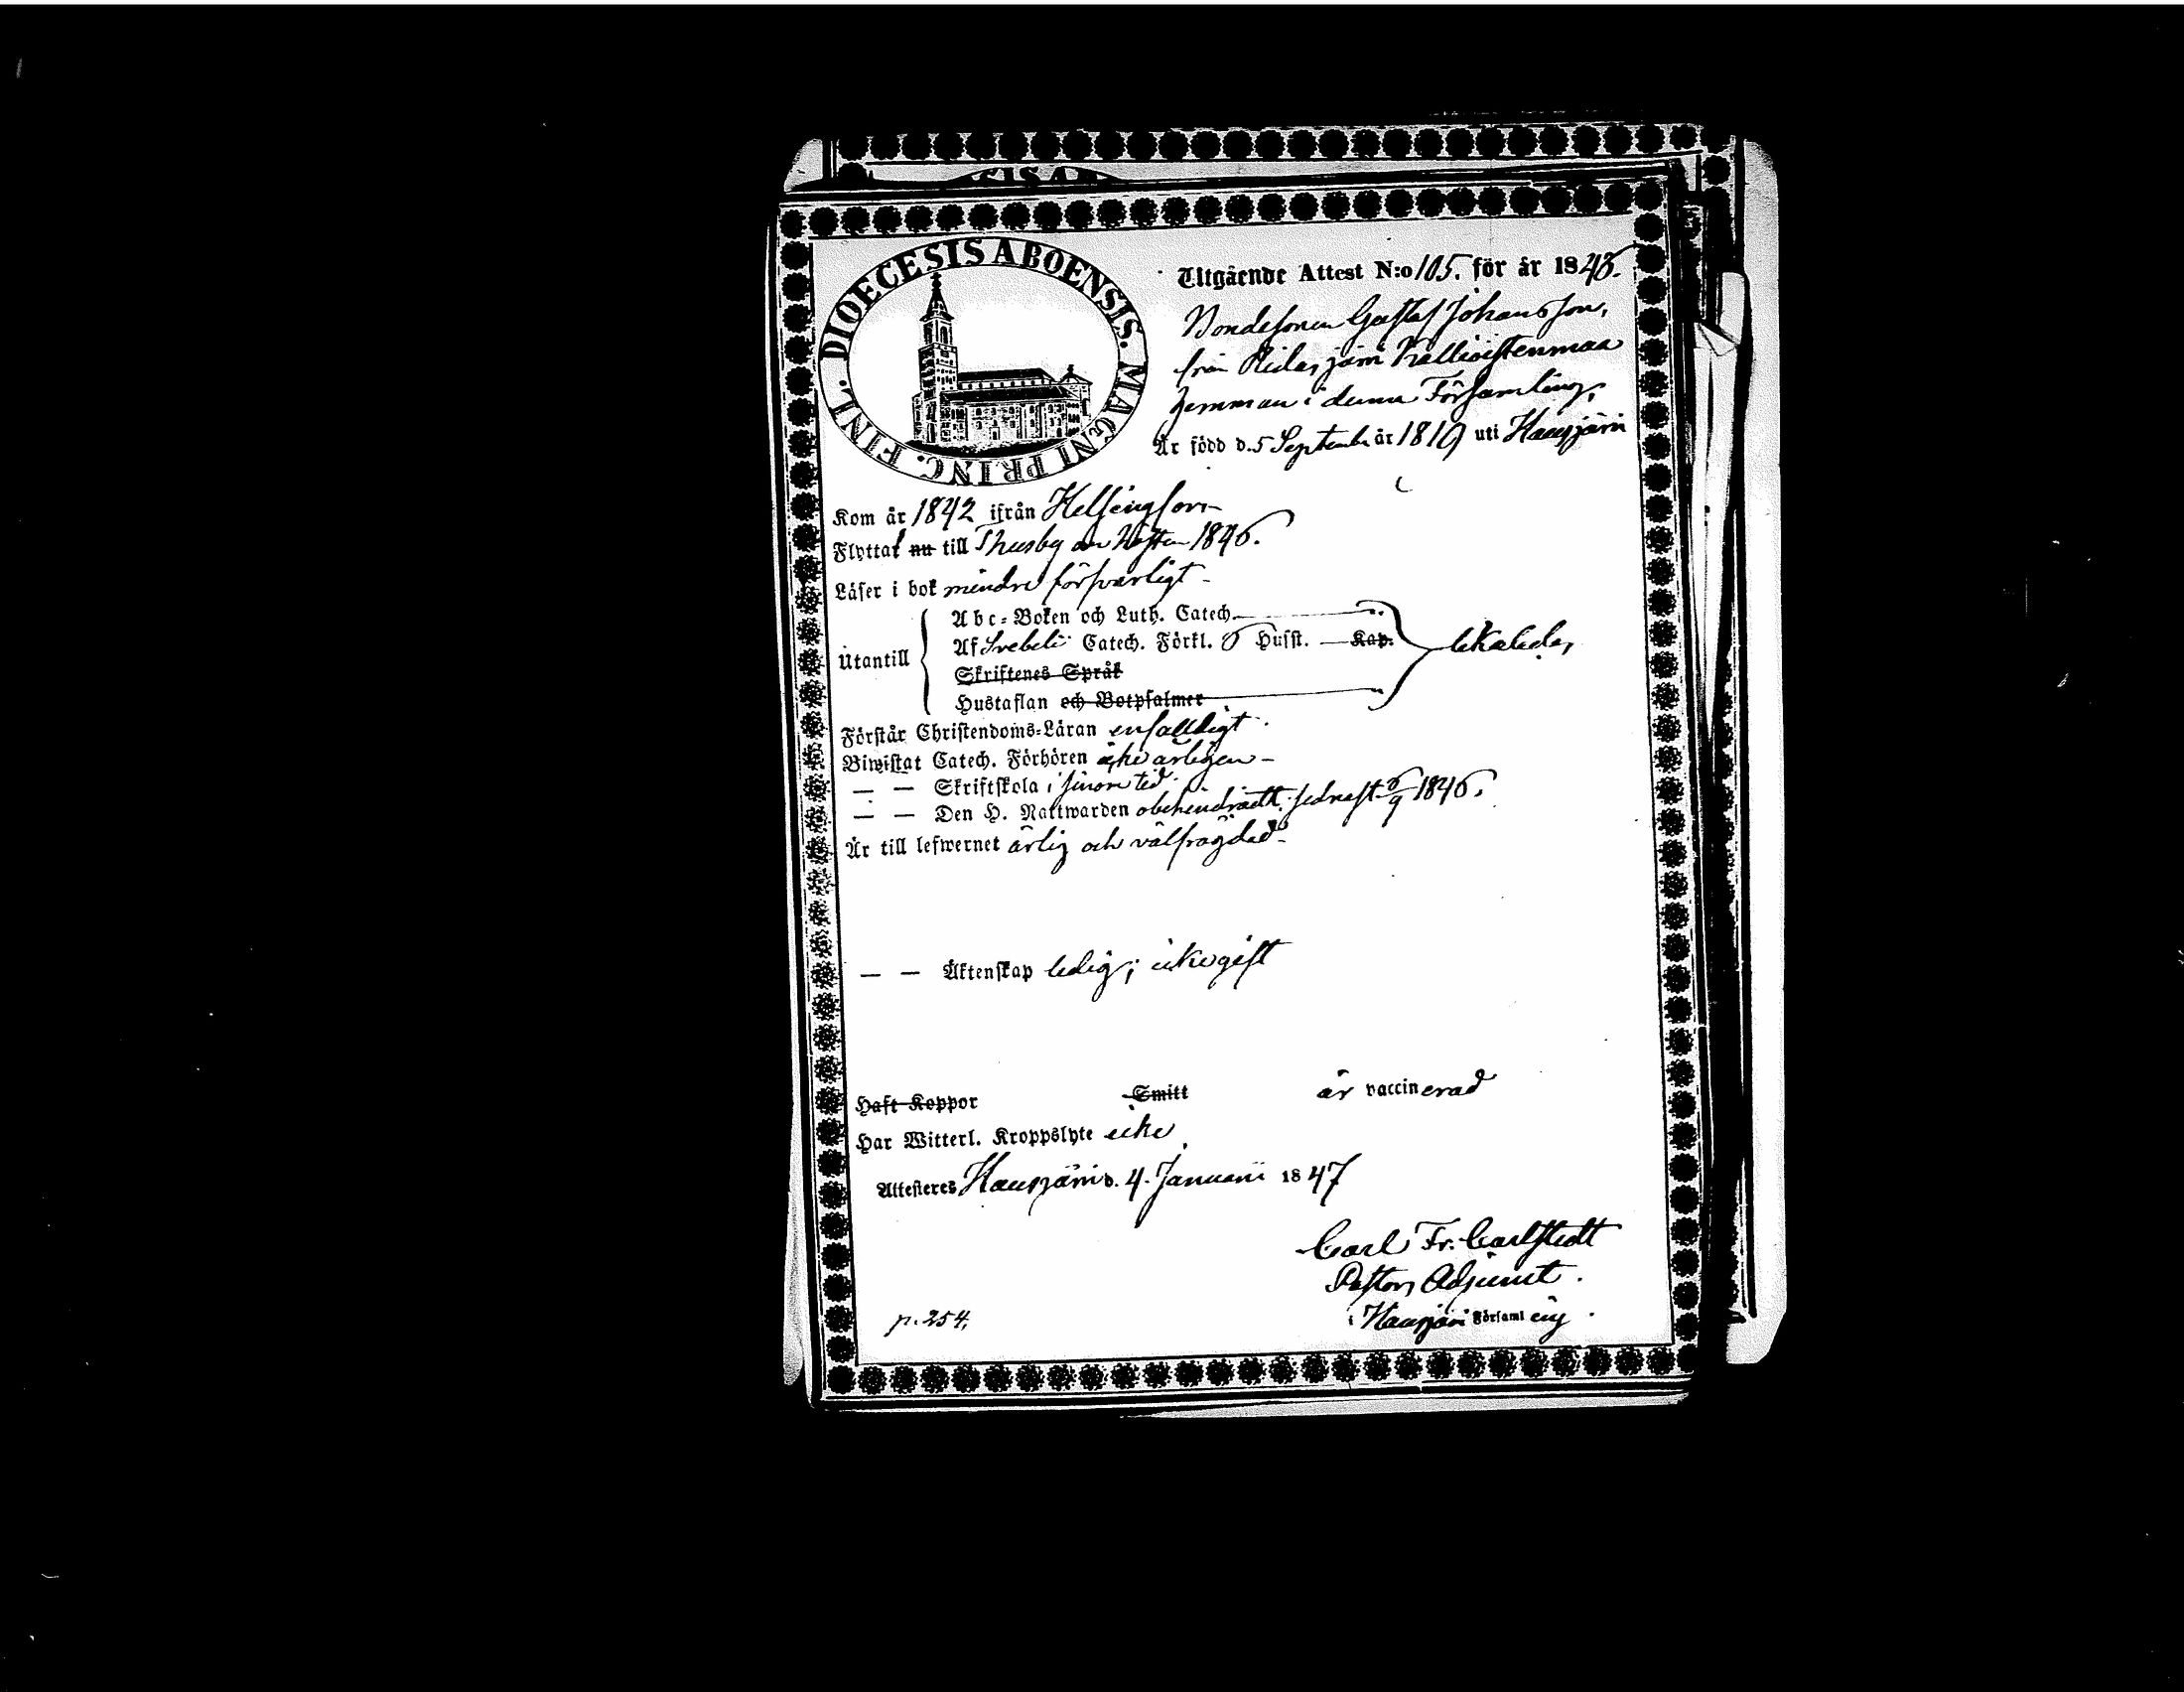 DIOECESIS ABOENSIS. MAGNI PRINC. FINL.
Utgående Attest N:o 105. för år 1846.
Bondesonen Gustaf Johansson,
från Ridasjärvi Kallioistenmaa
hemman i denna Församling,
Är född d. 5 September år 1819 uti Hausjärvi
Kom år 1842 ifrån Helsingfors
Flyttat nu till Thusby om Hösten 1846.
Läser i bok mindre försvarligt
Utantill
Abc-Boken och Luth. Catech.
Af Svebelii Catech. Förkl. Husst. Kap.
likaledes
Skriftenes Språk
Hustaflan och Botpsalmer
Förstår Christendoms-Läran enfalldigt
Biwistat Catech. Förhören icke årligen
— — Skriftskola i sinom tid
— — Den H. Nattwarden obehindradt, sednast 6/9 1846.
Är till lefwernet ärlig och välfrägdad
— — Äktenskap ledig; icke gift
Haft Koppor Smitt är vaccinerad
Har Witterl. Kroppslyte icke
Attesteres Hausjärvi d. 4. Januarii 1847
Carl Fr. Carlstedt
Pastors Adjunct.
i Hausjärvi Församling.
p. 254.